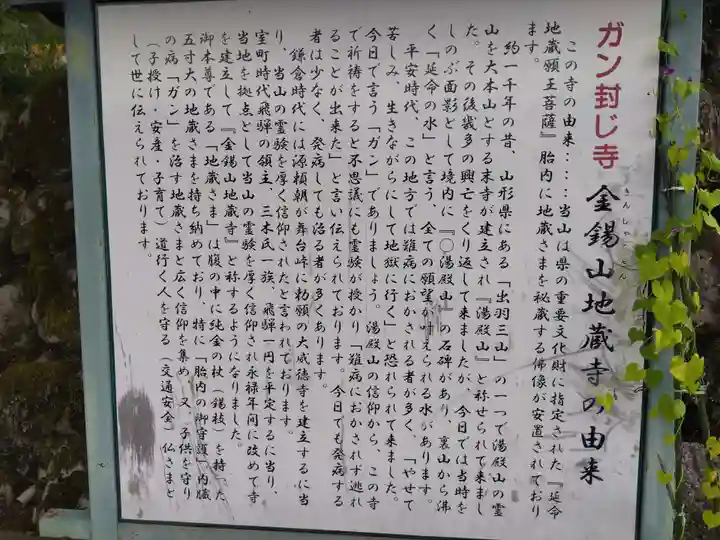 ガン封じ寺 金錫山地蔵寺の由来
きんしゃくざん
この寺の由来・・・・当山は県の重要文化財に指定された『延命
地蔵願王菩薩』胎内に地蔵さまを秘蔵する佛像が安置されており
ます。
約一千年の昔、山形県にある「出羽三山」の一つで湯殿山の霊
山を大本山とする末寺が建立され『湯殿山』と称せられて来まし
た。その後幾多の興亡をくり返して来ましたが、今日では当時を
しのぶ面影として境内に『〇湯殿山』の石碑があり、裏山から沸
く「延命の水」と言う、全ての願望が叶えられる水があります。
平安時代、この地方では難病におかされる者が多く、「やせて
苦しみ、生きながらにして地獄に行く」と恐れられて来ました。
今日で言う「ガン」でありましょう。湯殿山の信仰から、この寺
で祈祷をすると不思議にも霊験が授かり「難病におかされず逃れ
ることが出来た」と言い伝えられております。今日でも発病する
者は少なく、発病しても治る者が多くあります。
鎌倉時代には源頼朝が舞台峠に勅願の大威徳寺を建立するに当
り、当山の霊験を厚く信仰されたと言われております。
室町時代飛騨の領主、三木氏一族、飛騨一円を平定するに当り、
当地を拠点として当山の霊験を厚く信仰され永禄年間に改めて寺
を建立して『金錫山地蔵寺』と称するようになりました。
御本尊である「地蔵さま」は腹の中に純金の杖（錫杖）を持った
五寸大の地蔵さまを持ち納めており、特に「胎内の御守護」内臓
の病「ガン」を治す地蔵さまと広く信仰を集め、又、子供を守り
（子授け・安産・子育て）道行く人を守る（交通安全）仏さまと
して世に伝えられております。